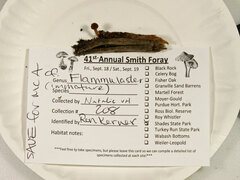 41st Annual Smith Foray
Fri., Sept. 18 / Sat., Sept. 19
Genus Flammulaster
(immature)
Species
Collected by Natalie VH
Collection # 208
Identified by Ron Kerner
Habitat notes:
Purdue Hort. Park
Celery Bog
Fisher Oak
Granville Sand Barrens
Martell Forest
Moyer-Gould
Purdue Hort. Park
Ross Biol. Reserve
Roy Whistler
Shades State Park
Turkey Run State Park
Wabash Bottoms
Weiler-Leopold
Feel free to take specimens, but please leave this card so we can compile a detailed list of
specimens collected at each site.
SAVE for MCA